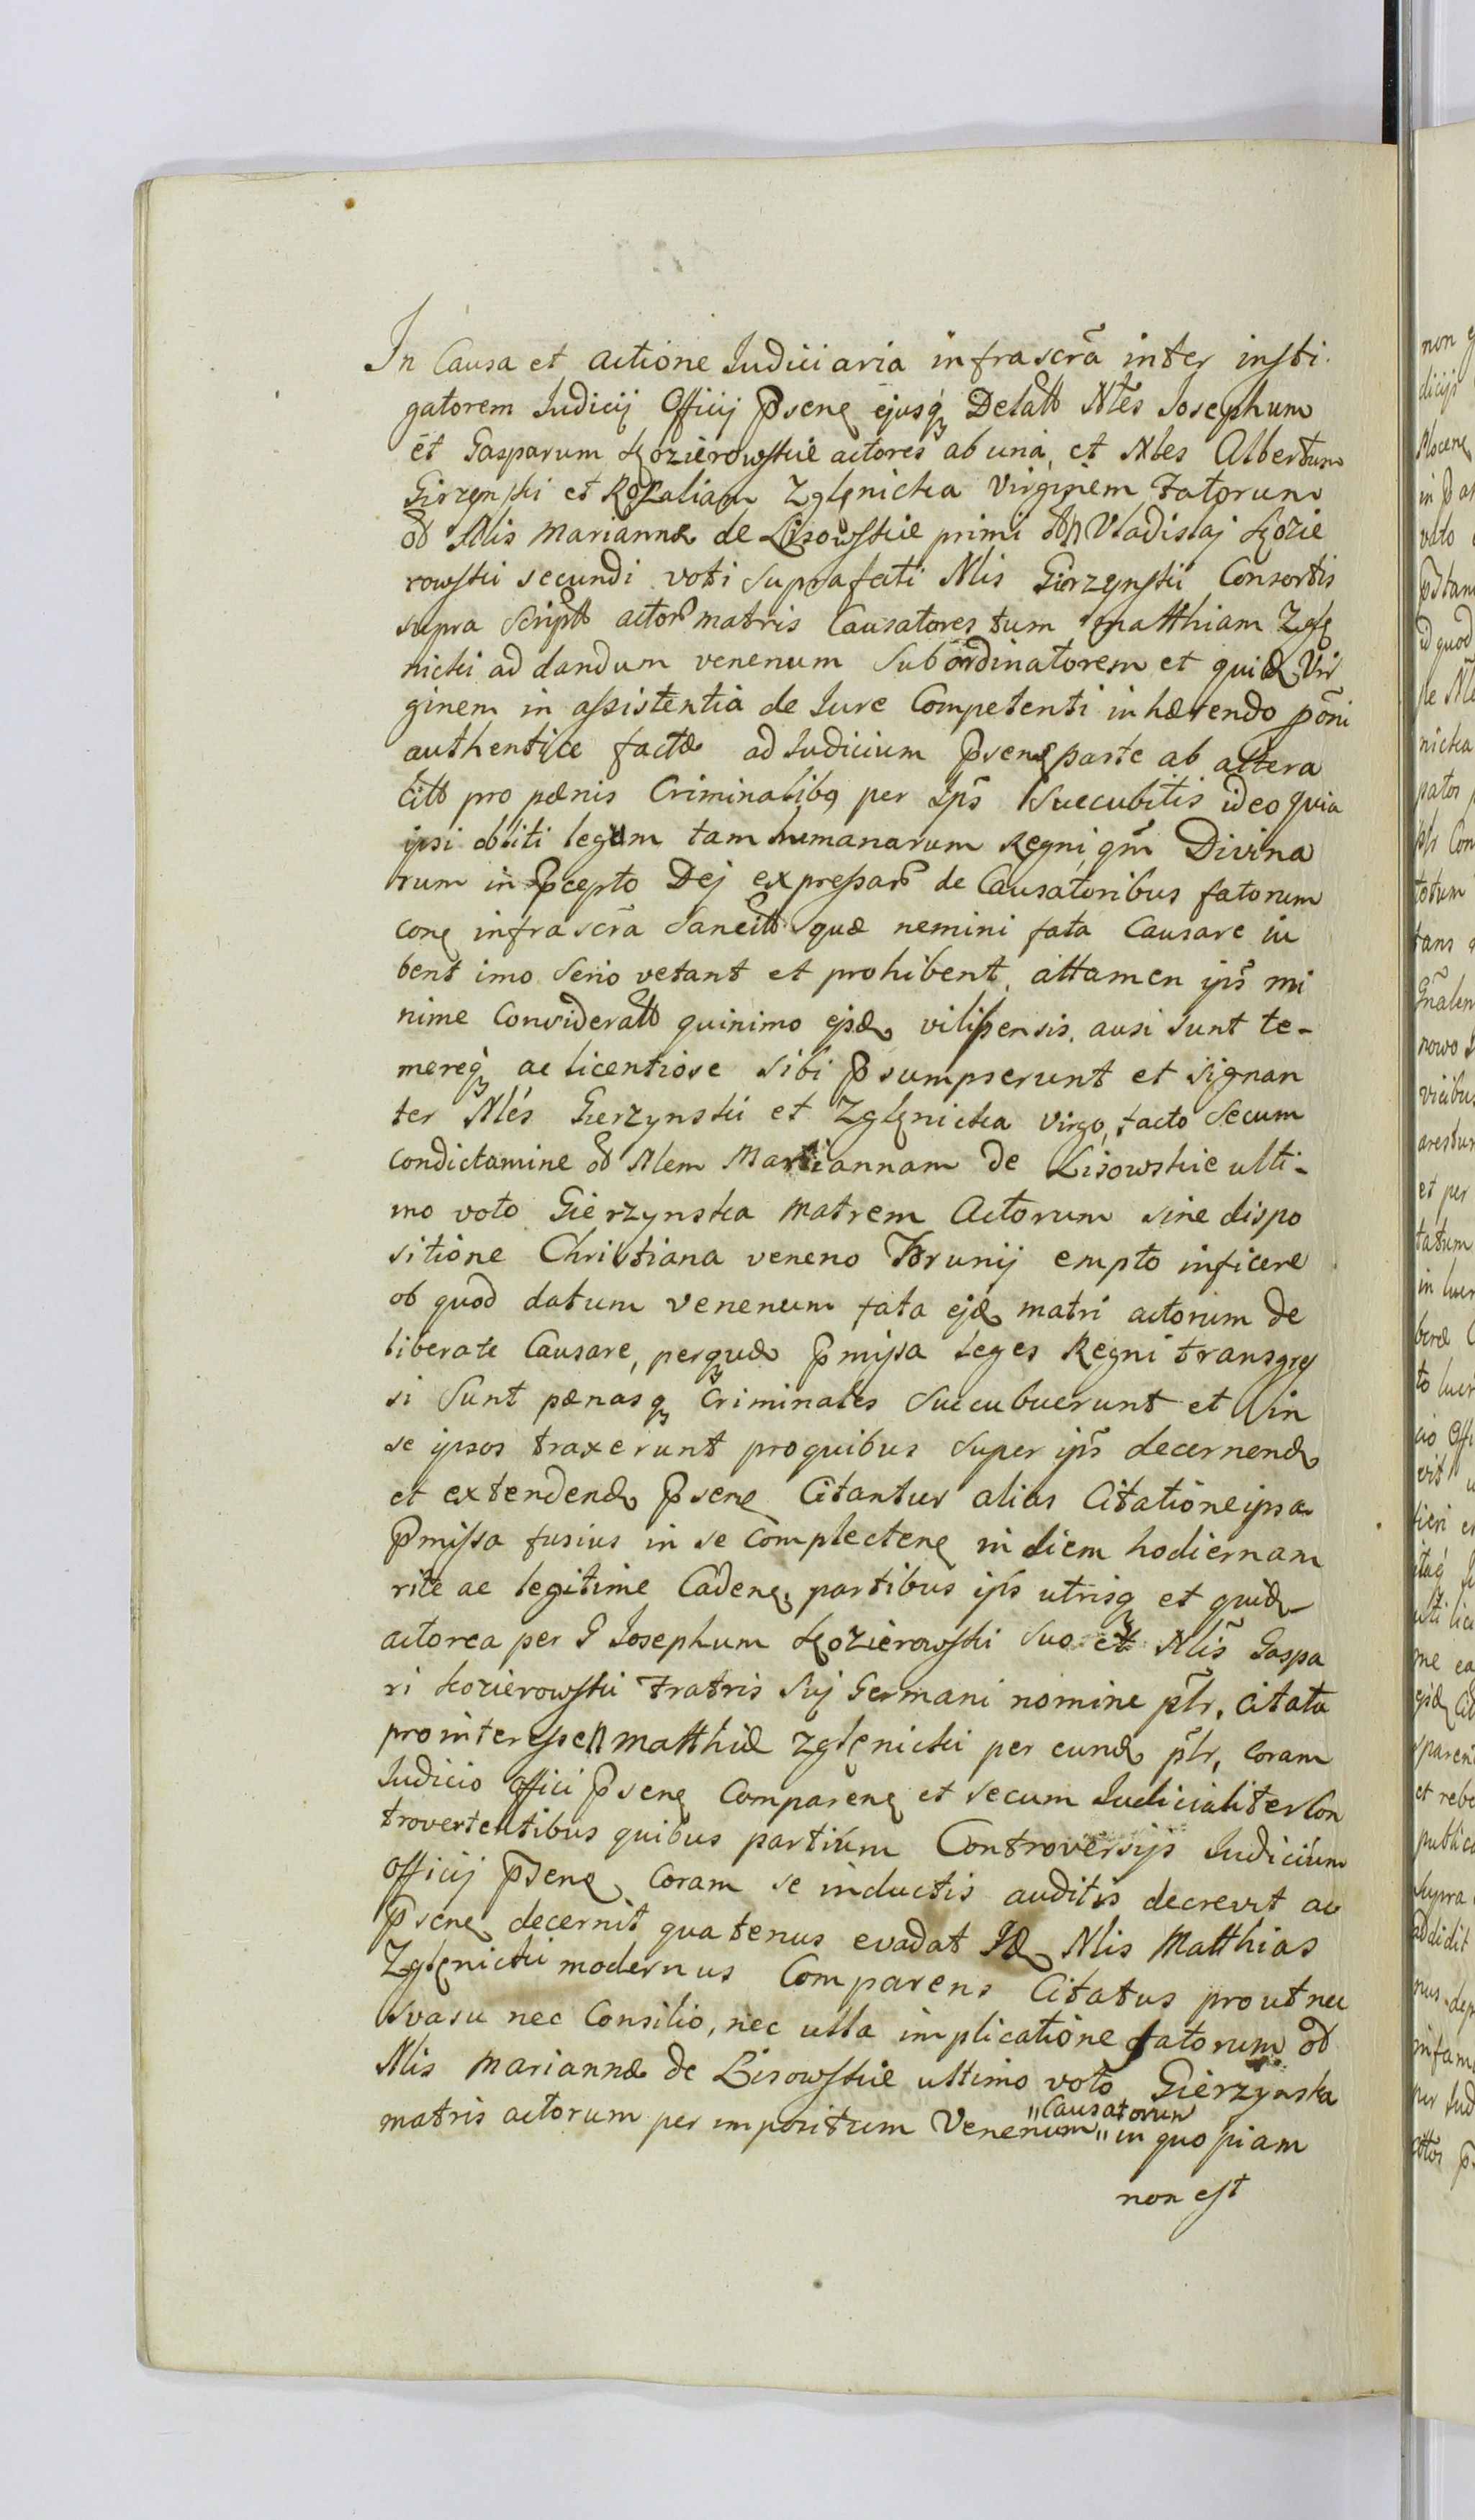 In Causa et actione Judiciaria infrascrã inter insti-
gatorem Judicij Officij Psenꝗ ejusqꝫ Delatt Nles Josephum
et Gasparum Kozierowskie actores ab una, et Nles Albertum
Girzynski et Rozaliam Zglęnicka Virginem Fatorum
od Nlis Mariannæ de Lisowskie primi Vladislaj Kozie
rowski secundi voti suprafati Nlis Gierzynski Consortis
supra scriptt actor matris Causatores tum Matthiam Zglę
nicki ad dandum venenum subordinatorem et quid Vir
ginem in assistentia de Jure Competenti inhærendo põni
authentice factæ ad Judicium Psenꝗ parte ab altera
Citt pro pænis Criminalibꝗ per Ips succubitis ideo quia
ipsi obliti legum tam humanarum Regni qm Divina
rum in Pcepto Dej expressar de Causatoribus fatorum
conꝗ infrascrã Sancitt quæ nemini fata Causare iu
bent imo Serio vetant et prohibent, attamen ips mi
nime Consideratt quinimo ejsd vilipensis, ausi sunt te-
mereqꝫ ac licentiose sibi Psumpserunt et signan
ter Nles Gierzynski et Zglęnicka Virgo, facto Secum
condictamine od Nlem Mariannam de Lisowskie ulti-
mo voto Gierzynska Matrem Actorum sine dispo
sitione Christiana veneno Thrunij empto inficere
ob quod datum venenum fata ejd matri actorum de
liberate Causare, perqꝫ Pmissa Leges Regni transgres
si Sunt pænasqꝫ Criminales Succubuerunt et in
se ipsos traxerunt pro quibus Super ips decernend
et extendend Psenꝗ Citantur alias Citatione ipsa
Pmissa fusius in se Complectenꝗ in diem hodiernam
rite ac legitime Cadenꝗ, partibus ips utrisqꝫ et quid
actorea per G Josephum Kozierowski Suo et Nlis Gaspa
ri Kozierowski Fratris Suj Germani nomine ptr, Citata
pro interesse Matthiæ Zglęnicki per eund ptr, Coram
Judicio Offici Psenꝗ Comparenꝗ et secum Judicialiter Con
trovertentibus quibus partium Controversijs Judicium
Officij Psenꝗ, Coram se inductis auditis decrevit ac
Psenꝗ decernit quatenus evadat Id Nlis Matthias
Zglęnicki modernus Comparens Citatus prout nec
Svasu nec Consilio, nec ulla implicatione fatorum od
Nlis Mariannæ de Lisowskie ultimo voto Gierzynska
"Causatorum
matris actorum per impositum Venenum" in quo piam
non est